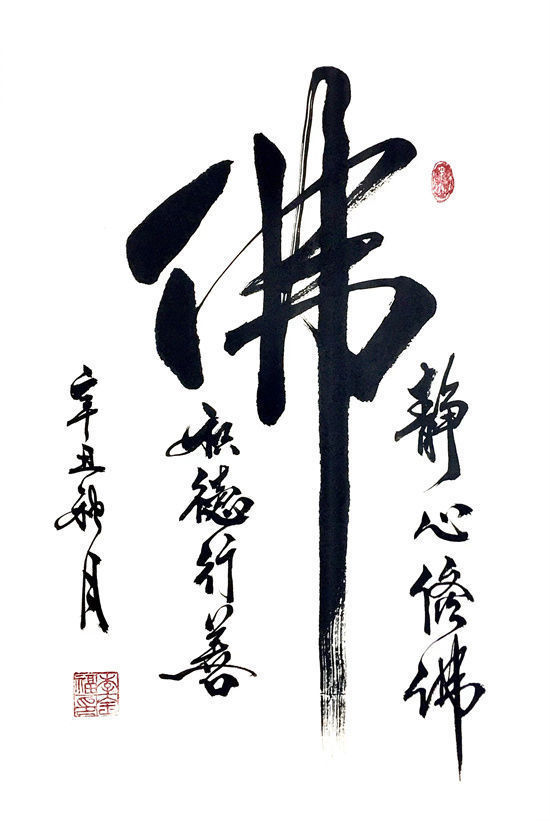 佛
静心修佛
积德行善
辛丑秋月